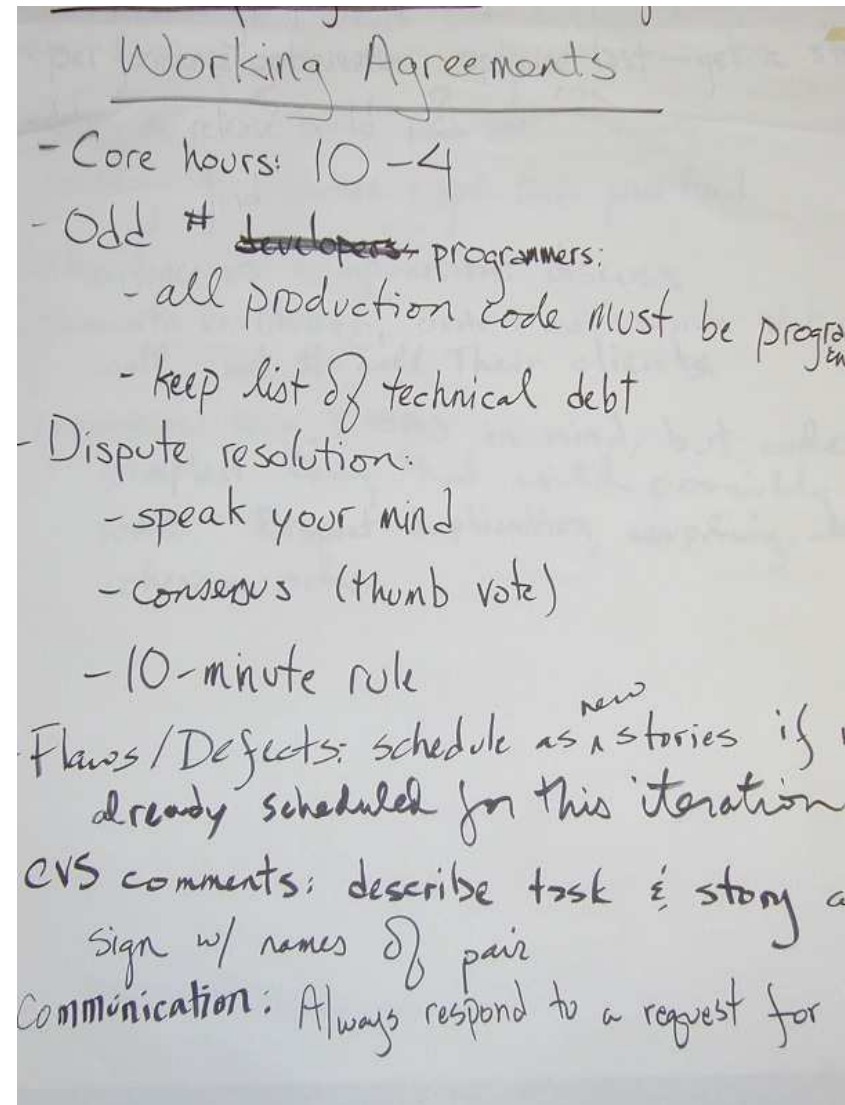 Working Agreements
- Core hours: 10-4
- Odd # developers programmers:
- all production code must be progra
- keep list of technical debt
- Dispute resolution:
- speak your mind
- consenus (thumb vote)
- 10-minute rule
- Flaws/Defects: schedule as new stories if
already scheduled for this iteration
CVS comments: describe task & story a
sign w/ names of pair
Communication: Always respond to a request for